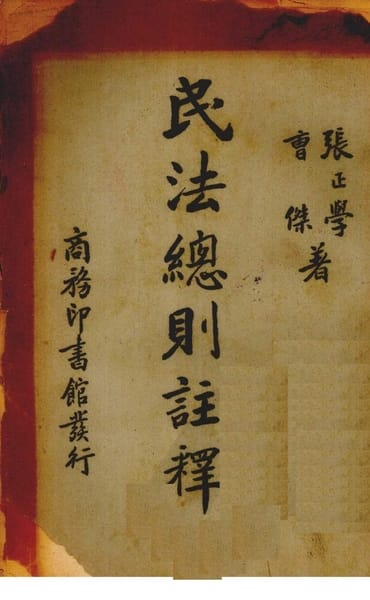 張正學
曹傑著
民法總則註釋
商務印書館發行